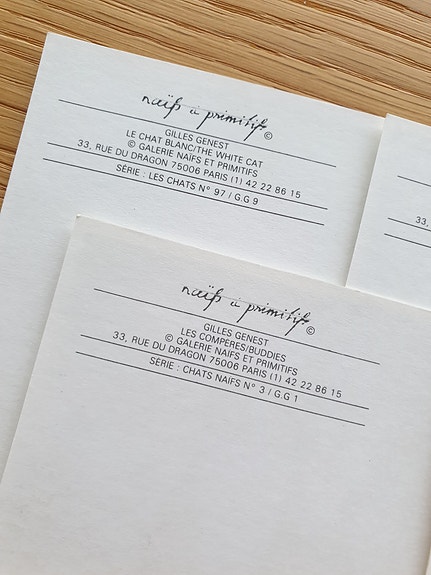 naïfs à primitifs ©
GILLES GENEST
LE CHAT BLANC/THE WHITE CAT
© GALERIE NAÏFS ET PRIMITIFS
33, RUE DU DRAGON 75006 PARIS (1) 42 22 86 15
SÉRIE : LES CHATS N° 97 / G.G 9
33,
naïfs à primitifs ©
GILLES GENEST
LES COMPÈRES/BUDDIES
© GALERIE NAÏFS ET PRIMITIFS
33, RUE DU DRAGON 75006 PARIS (1) 42 22 86 15
SÉRIE : CHATS NAÏFS N° 3 / G.G 1